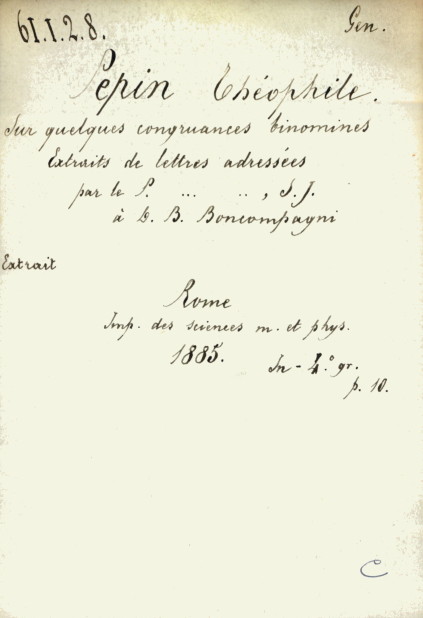 61.1.2.8.
Gen.
Pepin Théophile.
Sur quelques congruances binomines
Extraits de lettres adressées
par le P. ... .. , S. J.
à D. B. Boncompagni
Extrait
Rome
Imp. des sciences m. et phys.
1885.
In - 4.° gr.
p. 10.
C